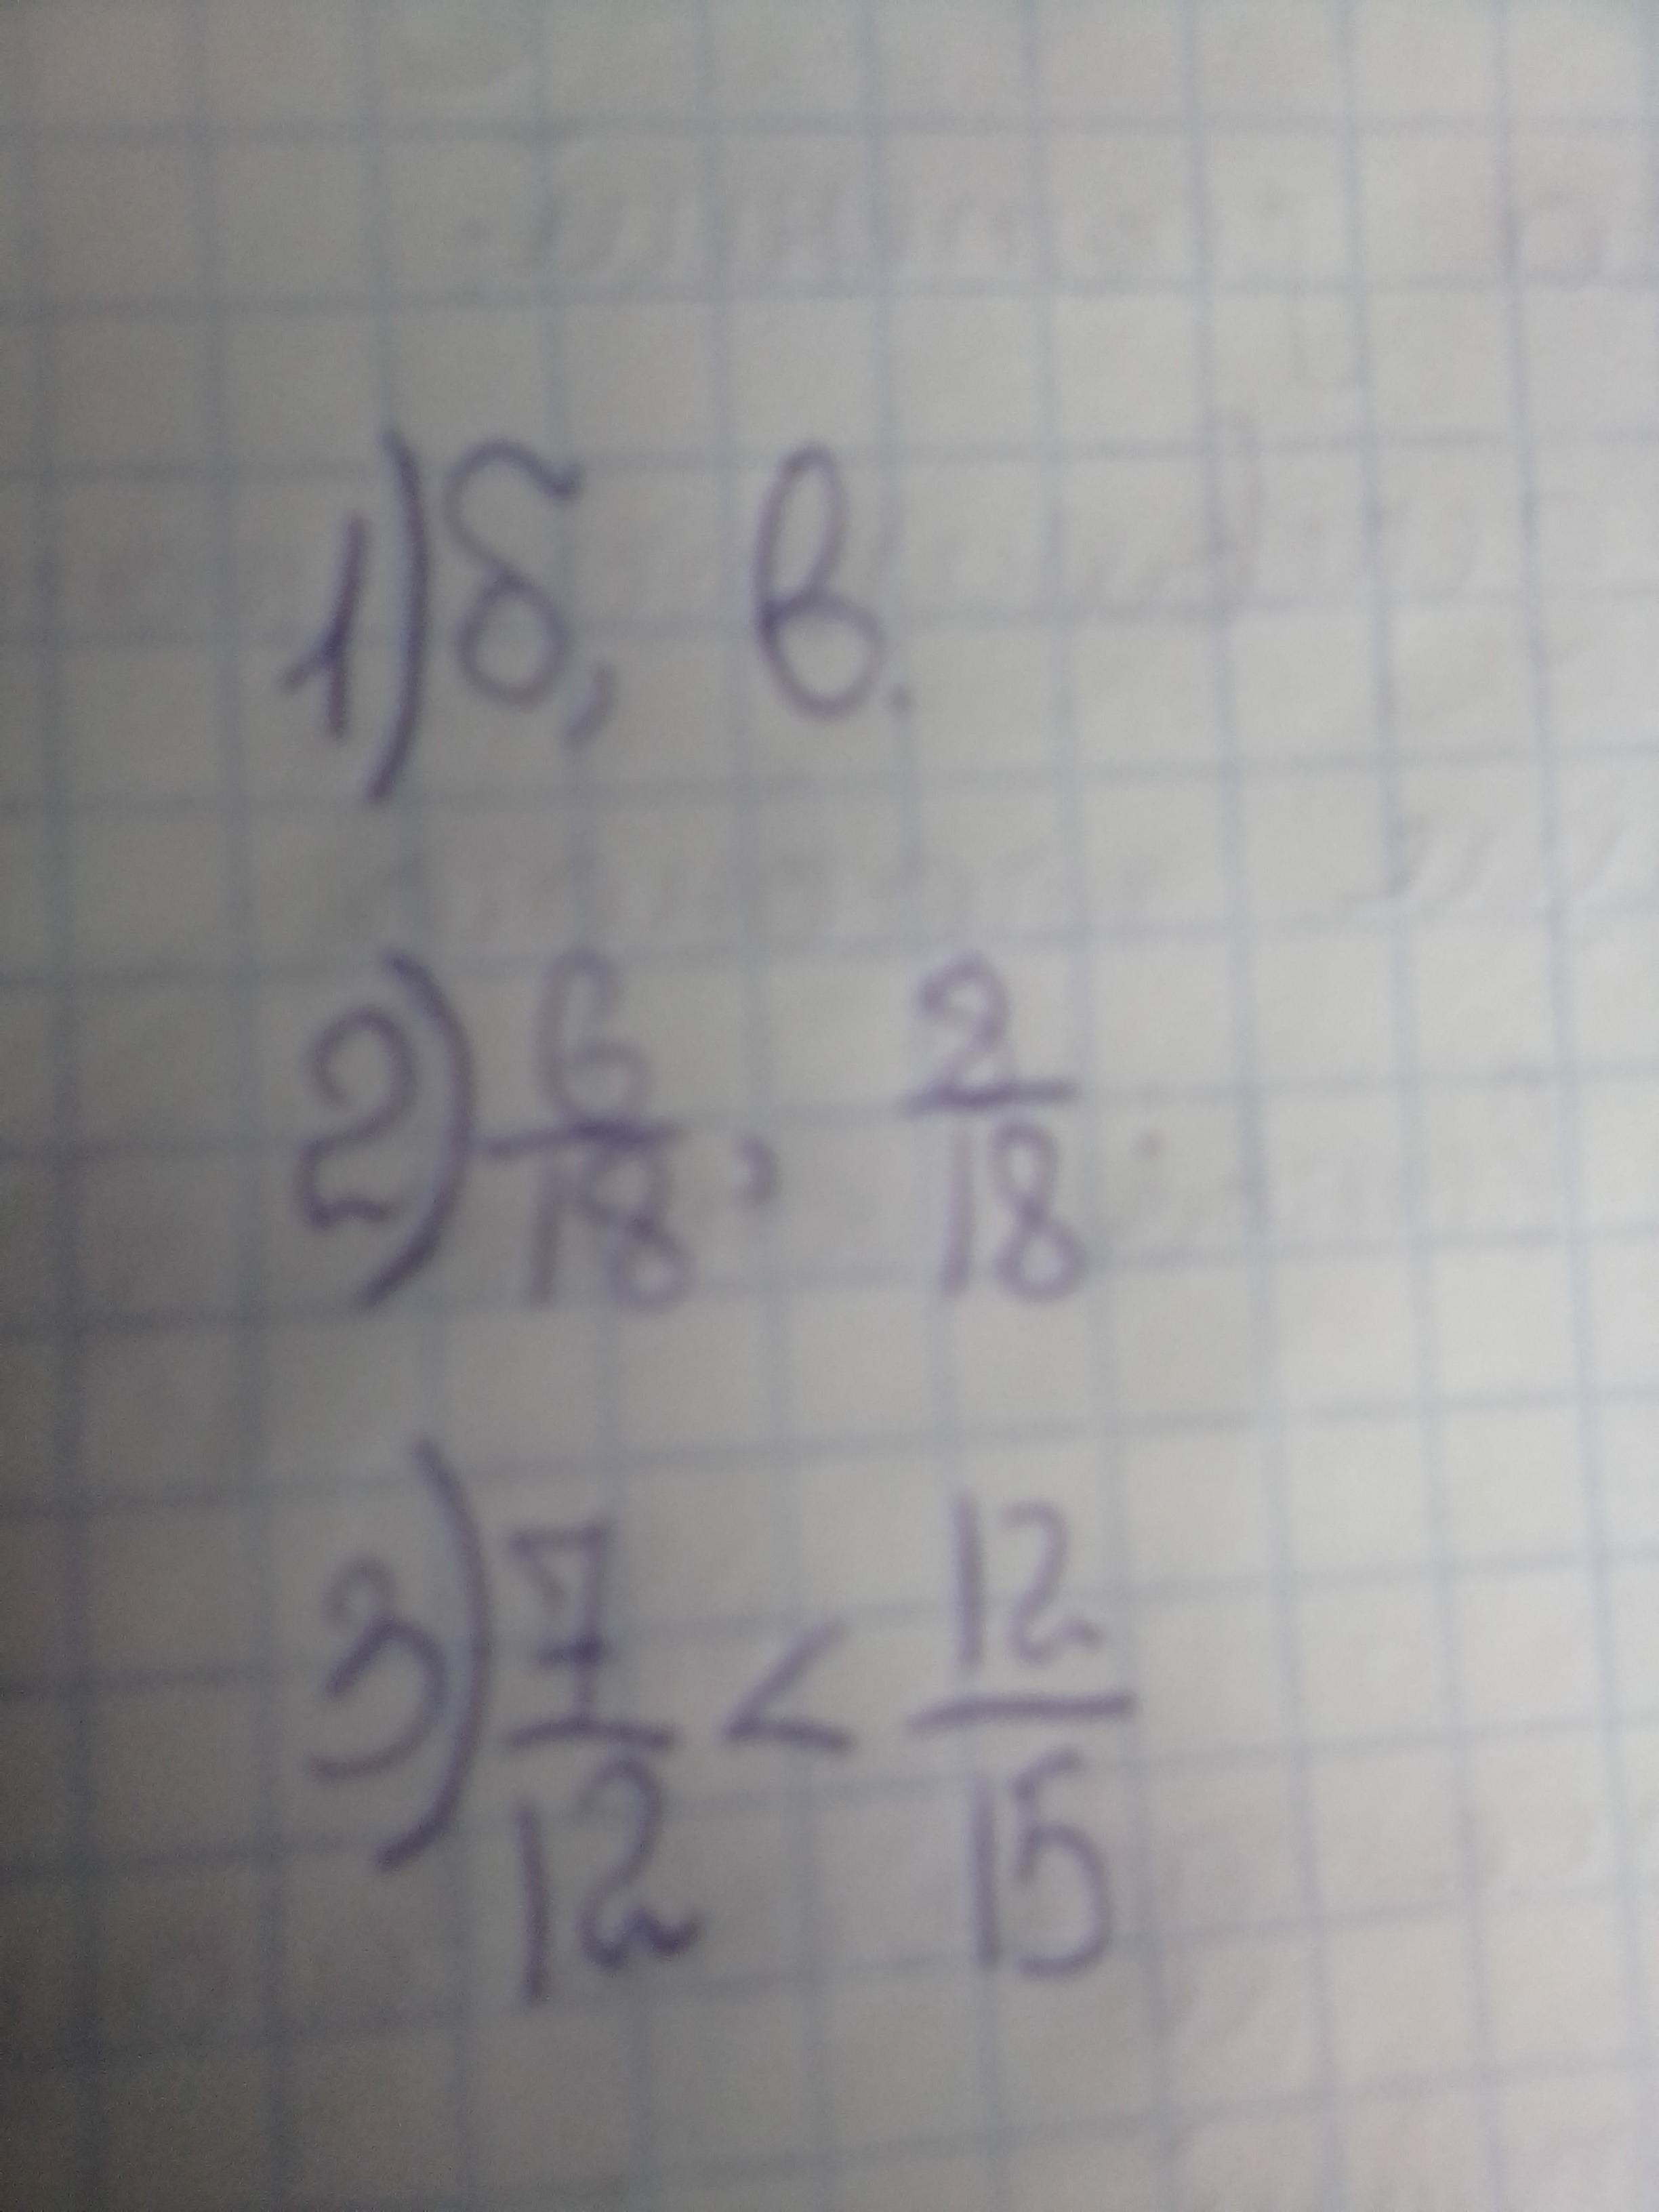 1) б, в.
2) 6/18, 2/18.
3) 7/12 < 12/15